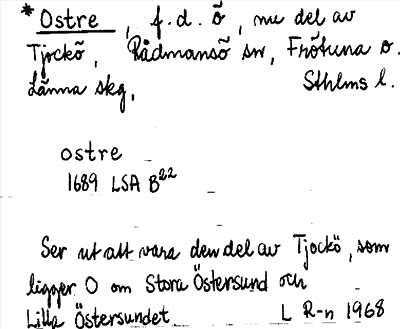 *Ostre, f.d. ö, nu del av
Tjockö, Rådmansö sn, Frötuna o.
Länna skg, Sthlms l.
ostre
1689 LSA B²²
Ser ut att vara den del av Tjockö, som
ligger O om Stora Östersund och
Lilla Östersundet L R-n 1968